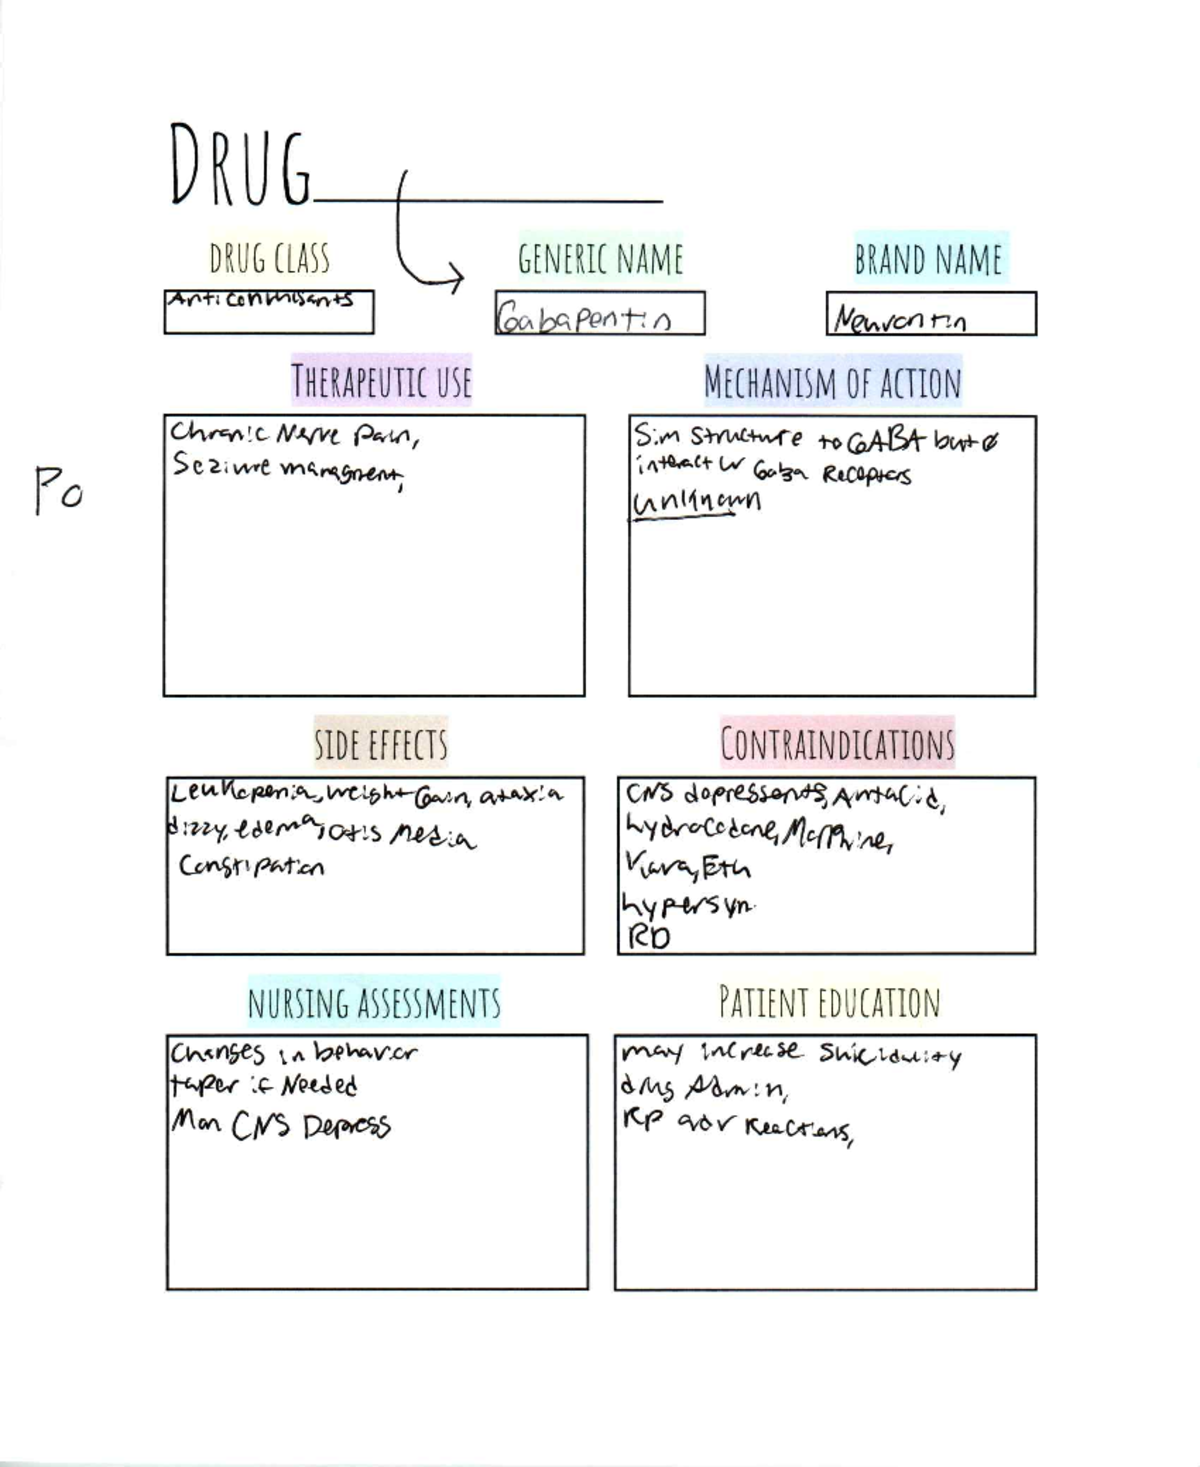 DRUG
DRUG CLASS
GENERIC NAME
BRAND NAME
Anticonvulsants
Gabapentin
Neurontin
THERAPEUTIC USE
MECHANISM OF ACTION
Chronic Nerve Pain,
Seziure managment,
Sim structure to GABA but Ø
interact w Gaba Receptors
unknown
Po
SIDE EFFECTS
CONTRAINDICATIONS
Leukopenia, weight Gain, ataxia
dizzy, edema, Otis Media
Constipation
CNS depressents, Antacid,
hydrocodone, Morphine,
Kava, Eth
hypersyn.
RD
NURSING ASSESSMENTS
PATIENT EDUCATION
Changes in behavor
taper if Needed
Mon CNS Depress
may increase Suicidality
drug Admin,
RP adv Reactions,